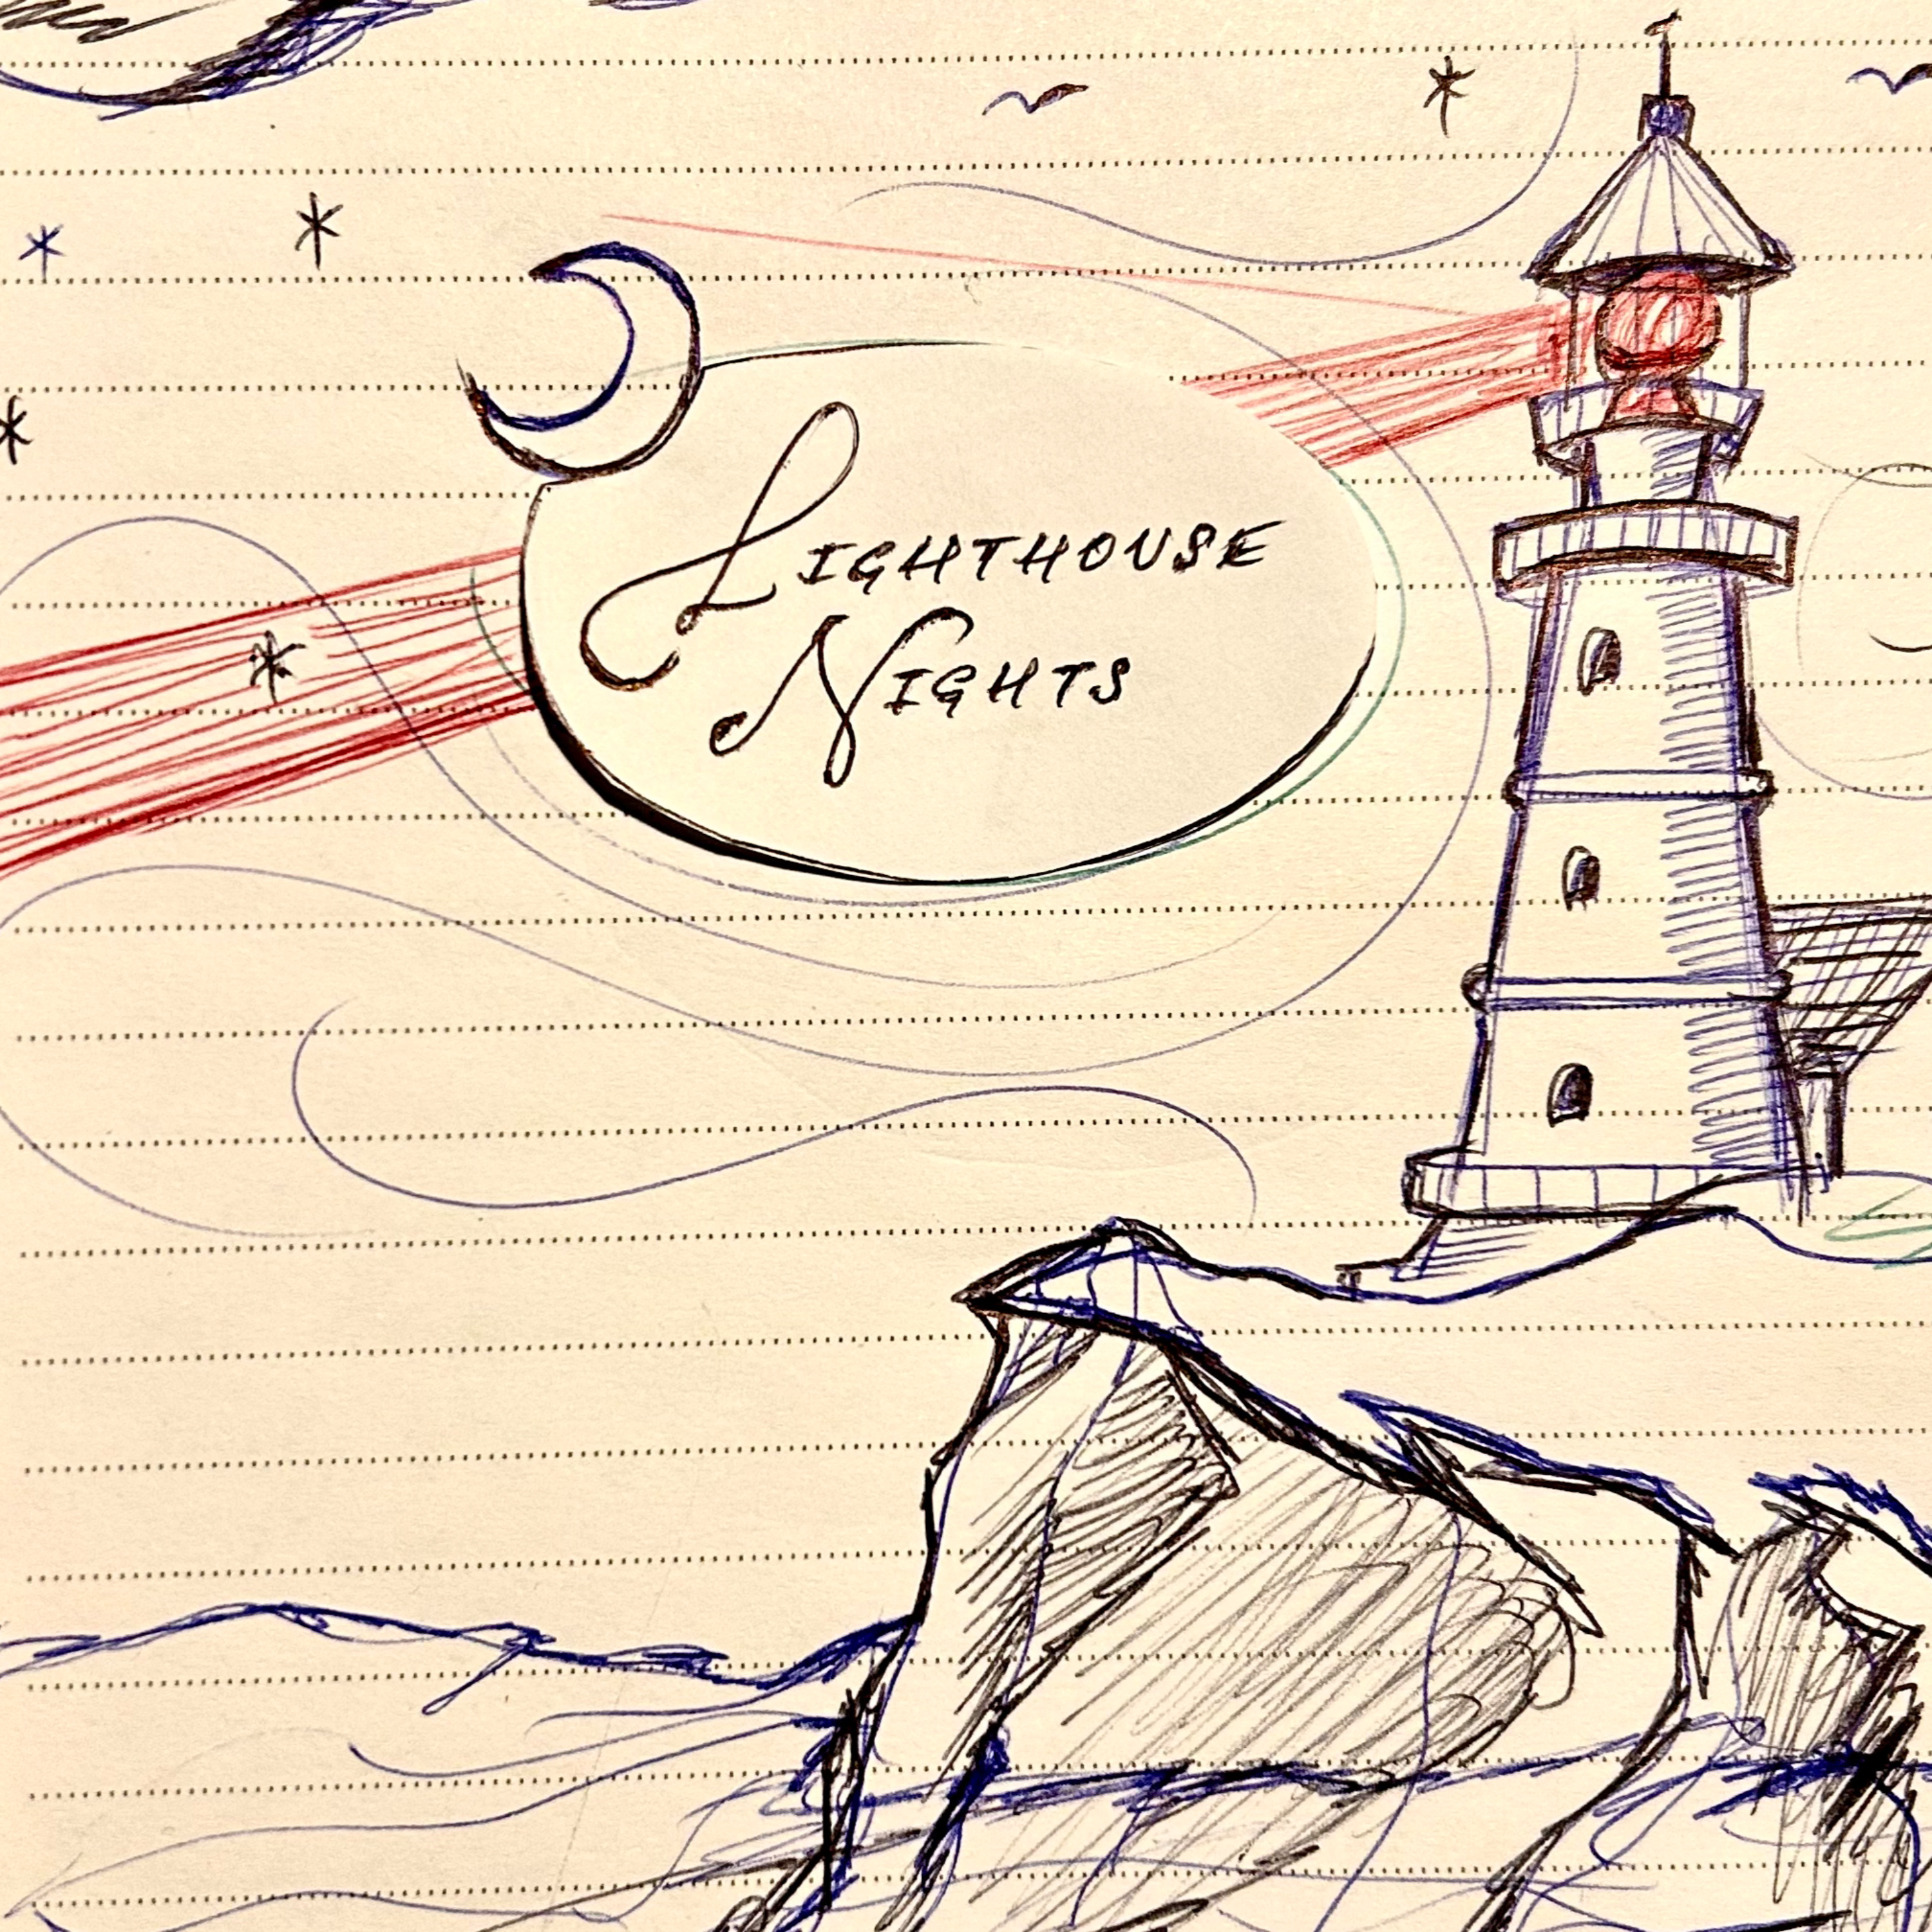 Lighthouse
Nights